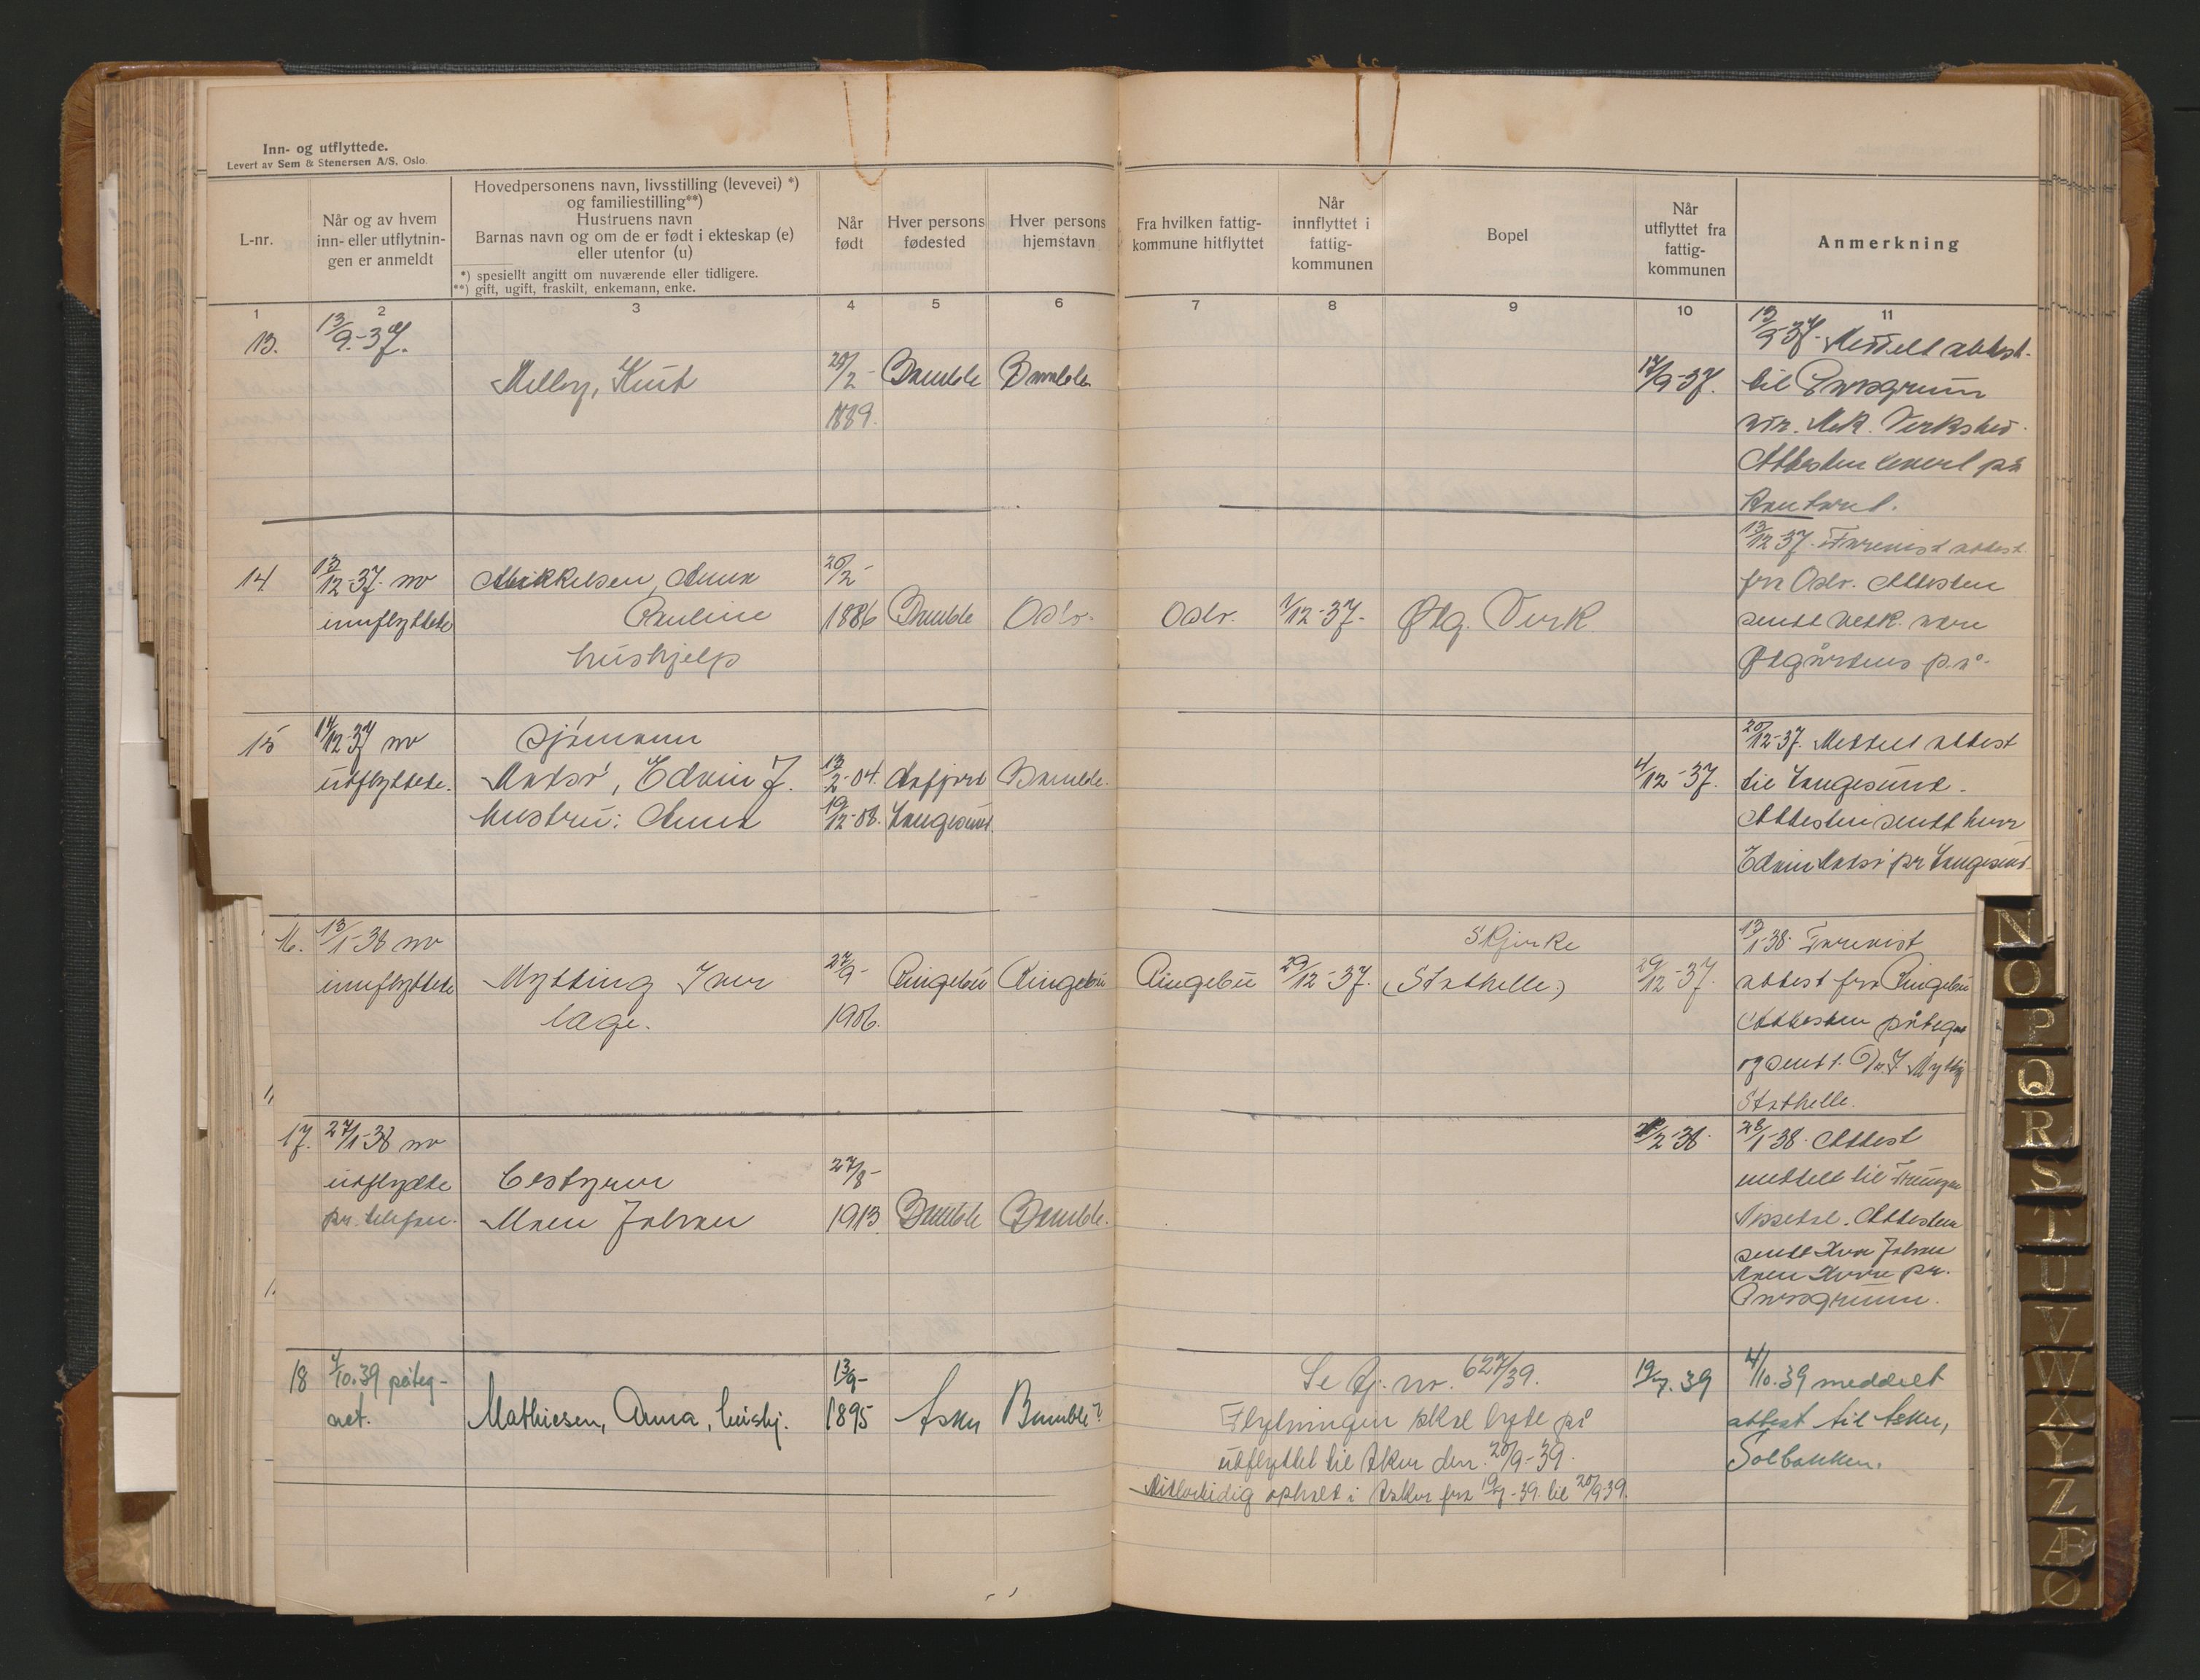 Inn- og utflyttede.
Levert av Sem & Stenersen A/S, Oslo.
L-nr.
Når og av hvem
inn- eller utflytnin-
gen er anmeldt
Hovedpersonens navn, livsstilling (levevei) *)
og familiestilling**)
Hustruens navn
Barnas navn og om de er født i ekteskap (e)
eller utenfor (u)
*) spesiellt angitt om nuværende eller tidligere.
**) gift, ugift, fraskilt, enkemann, enke.
Når
født
Hver persons
fødested
Hver persons
hjemstavn
Fra hvilken fattig-
kommune hitflyttet
Når
innflyttet i
fattig-
kommunen
Bopel
Når
utflyttet fra
fattig-
kommunen
Anmerkning
1 2 3 4 5 6 7 8 9 10 11
13. 13/9-37. 13/9-37. Meddelt attest
Melby, Knut 20/2- Bamble Bamble 17/9-37. til Porsgrunn
1889. Mek. Verksted.
Attesten levert på
kontoret.
13/12-37. Forevist attest
14. 13/12-37. av Mikkelsen, Anna 20/2- fra Oslo. Attesten
innflyttede Pauline 1886 Bamble Oslo. Oslo. 1/12-37. Ødg. Verk. sendt
hushjelp Ødgårdens
15 14/12 37 av Sjømann 20/12-37. Meddelt attest
utflyttede. Edvin J. 13/2-04. Bamble. 4/12-37. til Langesund.
hustru: Anna 19/12-08. Langesund. Attesten sendt herr
Edvin pr Langesund
16. 13/1-38 av Skjerke 13/1-38. Forevist
innflyttede Mytting Iver 27/9- Ringebu Ringebu Ringebu 29/12-37. (Stathelle) 29/12-37. attest fra Ringebu
læge. 1906. Attesten påtegnet
og sendt. Dr. I. Mytting
Stathelle.
17. 27/1-38 av /2-38. 28/1-38. Attest
utflyttede Bestyrer 27/8- meddelt til
pr. telefon. Moen Johan 1913. Bamble Bamble. Attesten
sendt Herr Johan
Moen pr.
Porsgrunn.
18 4/10.39 påteg- 13/9- Se Kj. nr. 627/39. 19/7.39 4/10.39 meddelt
net. Mathiesen, Anna, hushj. 1895 Asker Bamble? Flytningen skal lyde på attest til Asker,
utflyttet til Aker den 20/9-39. Solbakken.
Midlertidig ophold i Asker fra 19/7-39. til 20/9 39.
N
O
P
Q
R
S
T
U
V
W
X
Y
Z
Æ
Ø